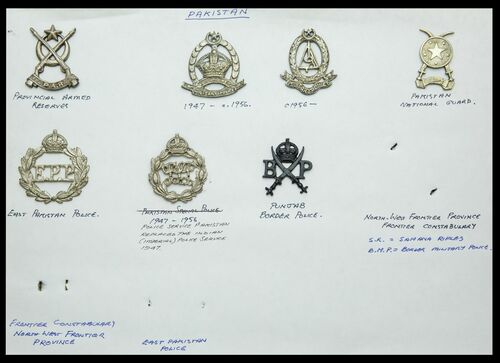 PAKISTAN
PROVINCIAL ARMED
RESERVES
1947 - c.1956.
c1956 -
PAKISTAN
NATIONAL GUARD.
E.P.P.
B P
EAST PAKISTAN POLICE.
PAKISTAN SPECIAL POLICE
1947 - 1956
POLICE SERVICE PAKISTAN
REPLACED THE INDIAN
(IMPERIAL) POLICE SERVICE
1947.
PUNJAB
BORDER POLICE.
NORTH-WEST FRONTIER PROVINCE
FRONTIER CONSTABULARY
S.R. = SAMANA RIFLES
B.M.P. = BORDER MILITARY POLICE.
FRONTIER CONSTABULARY
NORTH-WEST FRONTIER
PROVINCE
EAST PAKISTAN
POLICE